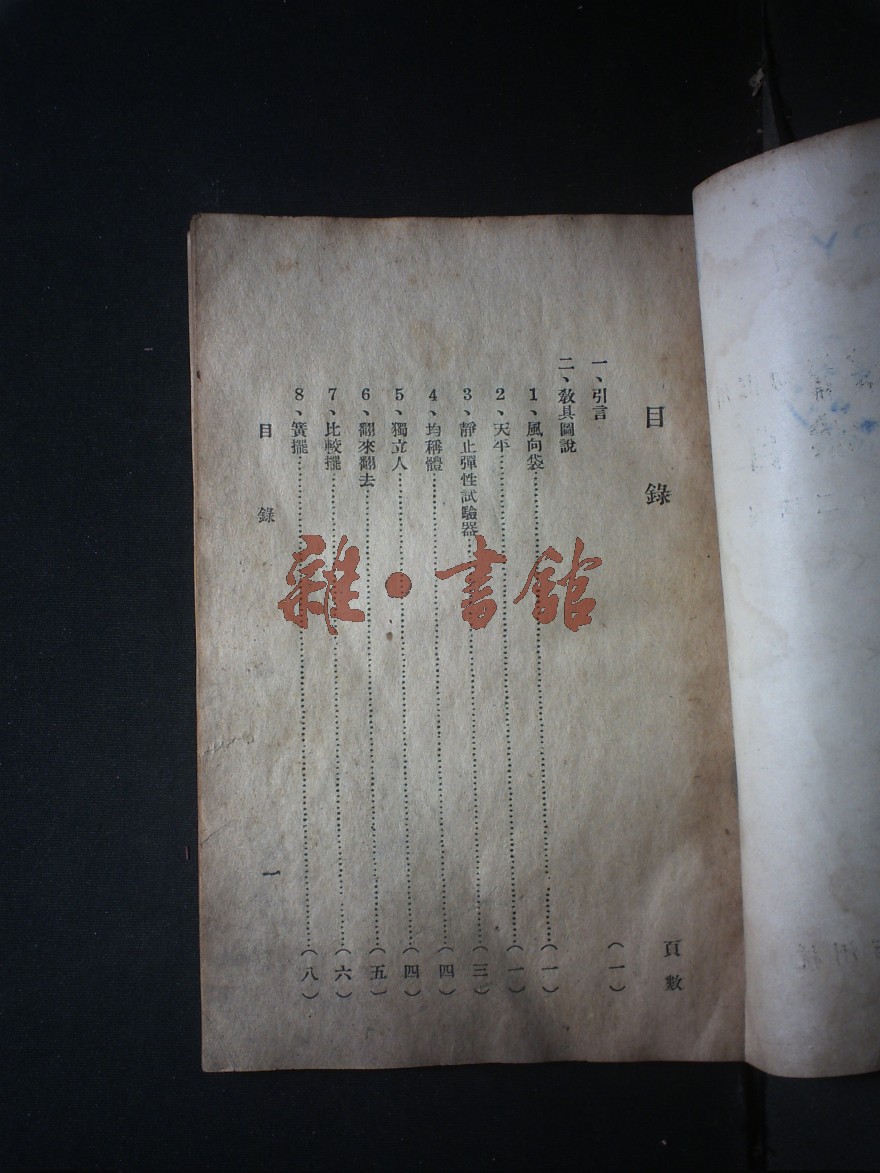 目錄 頁數
一、引言 (一)
二、教具圖說
1、風向袋 (一)
2、天平 (一)
3、靜止彈性試驗器 (三)
4、均稱體 (四)
5、獨立人 (四)
6、翻來翻去 (五)
7、比較擺 (六)
8、簧擺 (八)
目錄 一
雜·書館